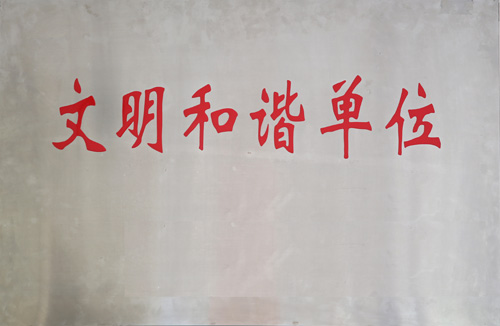 文明和谐单位